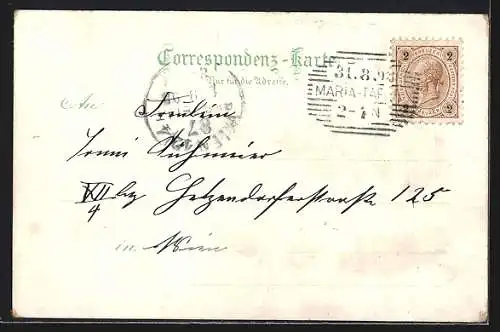 Correspondenz-Karte
Nur für die Adresse.
31.8.98
MARIA-TAF
2-4 N
2 2
Fräulein
Irmi Kuhmeier
XII/4 Bez Hetzendorferstraße 125
in Wien